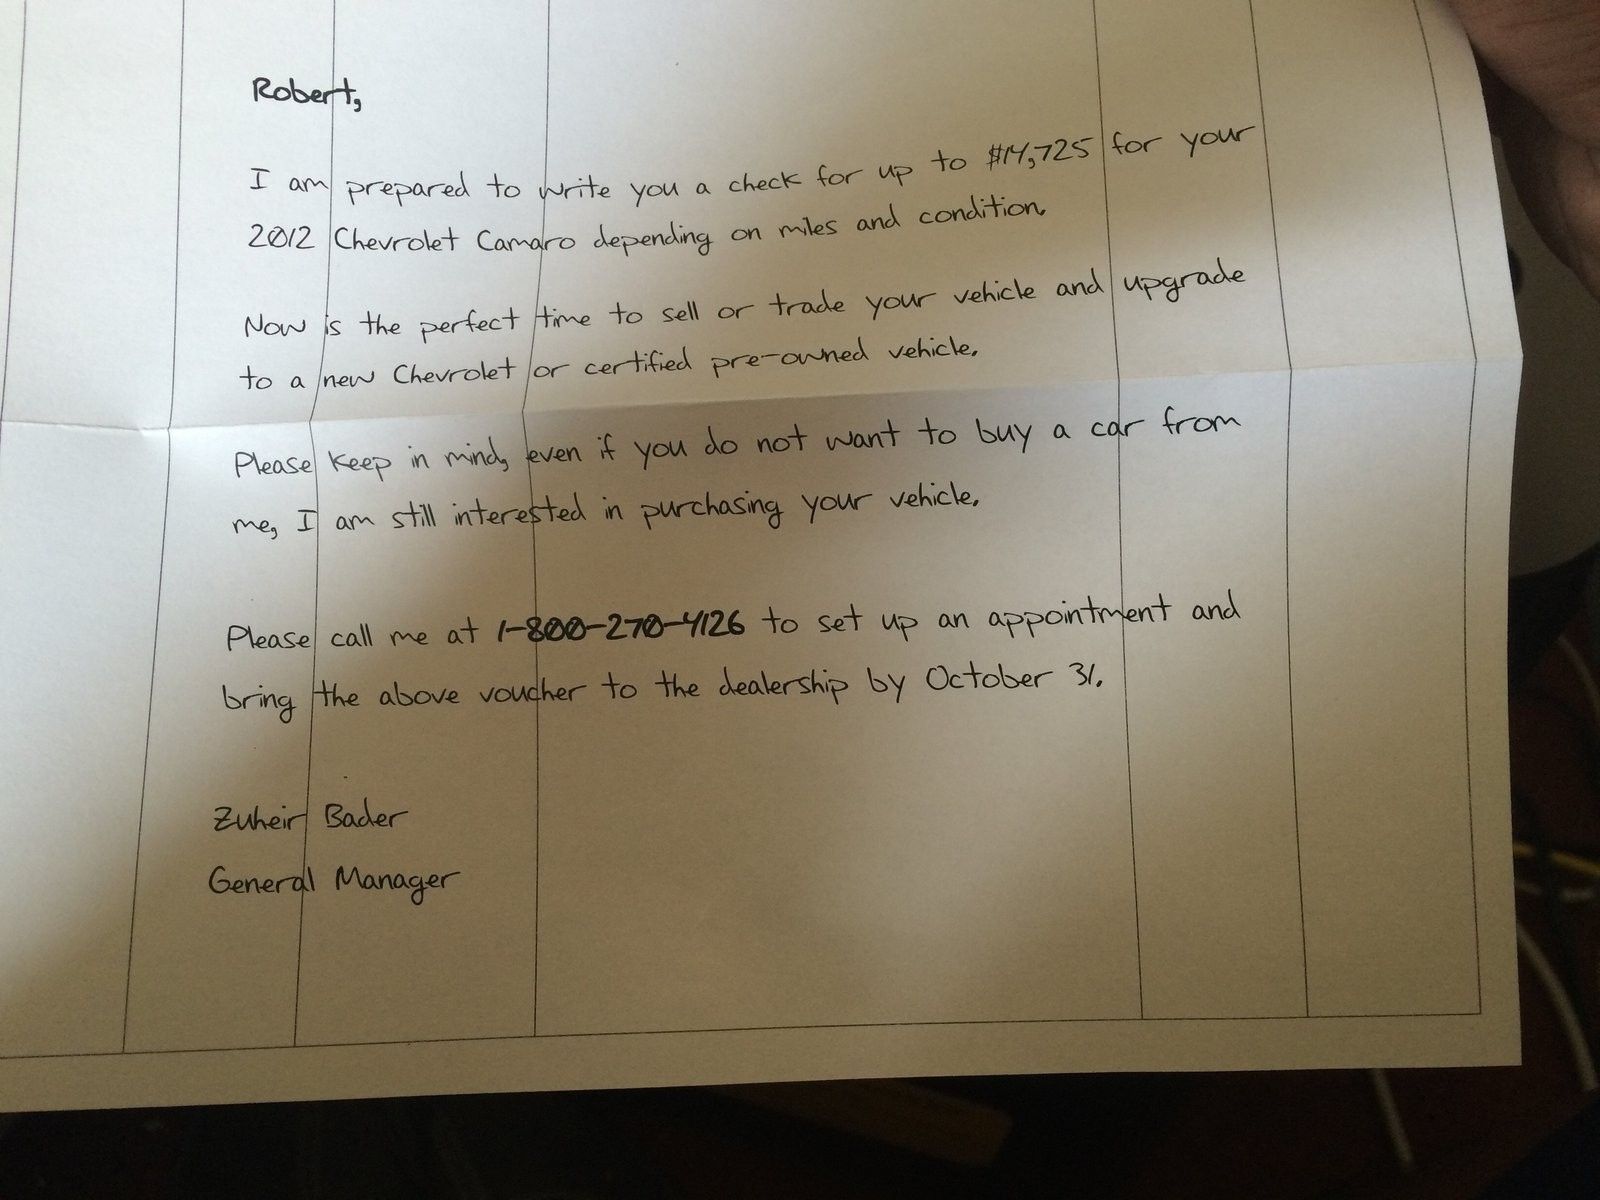 Robert,
I am prepared to write you a check for up to $14,725 for your
2012 Chevrolet Camaro depending on miles and condition.
Now is the perfect time to sell or trade your vehicle and upgrade
to a new Chevrolet or certified pre-owned vehicle.
Please keep in mind, even if you do not want to buy a car from
me, I am still interested in purchasing your vehicle.
Please call me at 1-800-270-4126 to set up an appointment and
bring the above voucher to the dealership by October 31.
Zuheir Bader
General Manager